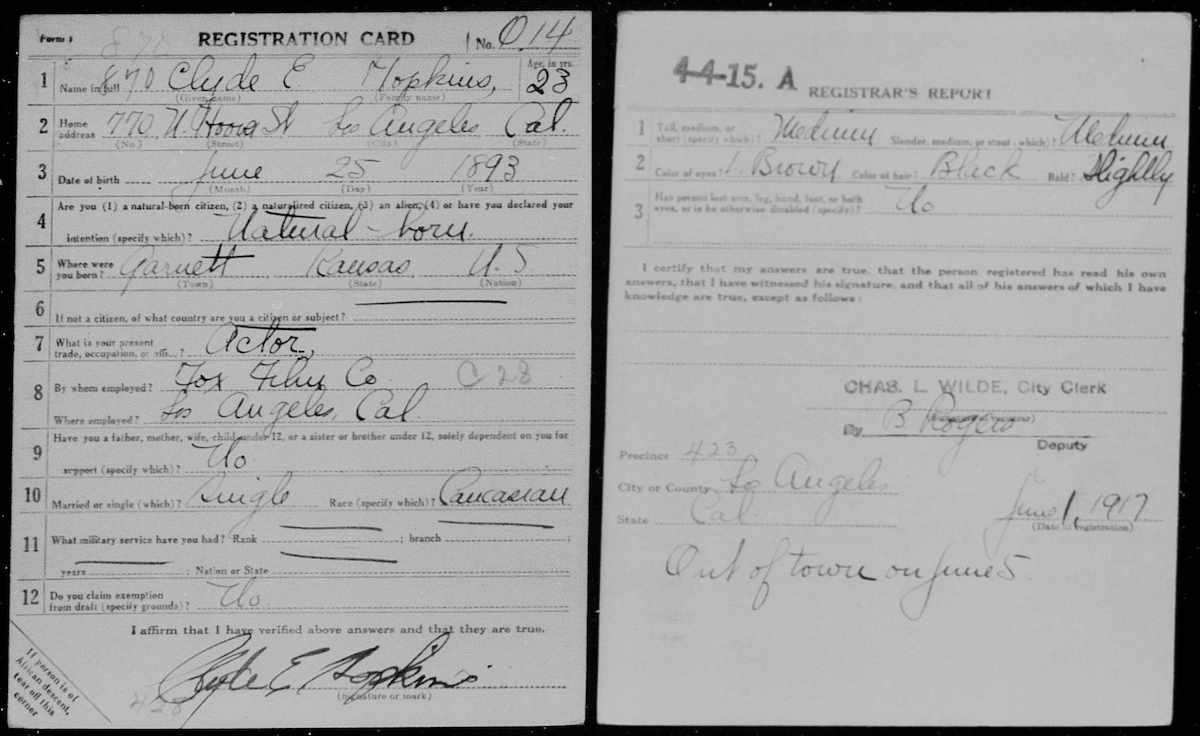 Form 1 870 REGISTRATION CARD No. 014
1 Name in full 870 Clyde E Hopkins, Age, in yrs. 23
(Given name) (Family name)
2 Home address 770 N. Hoover St Los Angeles Cal.
(No.) (Street) (City) (State)
3 Date of birth June 25 1893
(Month) (Day) (Year)
4 Are you (1) a natural-born citizen, (2) a naturalized citizen, (3) an alien, (4) or have you declared your
intention (specify which)? Natural-born.
5 Where were you born? Garnett Kansas U.S.
(Town) (State) (Nation)
6 If not a citizen, of what country are you a citizen or subject?
7 What is your present trade, occupation, or office? Actor,
8 By whom employed? Fox Film Co C 28
Where employed? Los Angeles, Cal.
9 Have you a father, mother, wife, child under 12, or a sister or brother under 12, solely dependent on you for
support (specify which)? No
10 Married or single (which)? Single Race (specify which)? Caucasian
11 What military service have you had? Rank ; branch ;
years ; Nation or State
12 Do you claim exemption from draft (specify grounds)? No
I affirm that I have verified above answers and that they are true.
Clyde E Hopkins
(Signature or mark)
If person is of
African descent,
tear off this
corner
428
4-4-15. A REGISTRAR'S REPORT
1 Tall, medium, or short (specify which)? Medium Slender, medium, or stout (which)? Medium
2 Color of eyes? L. Brown Color of hair? Black Bald? Slightly
3 Has person lost arm, leg, hand, foot, or both
eyes, or is he otherwise disabled (specify)? No
I certify that my answers are true, that the person registered has read his own
answers, that I have witnessed his signature, and that all of his answers of which I have
knowledge are true, except as follows:
CHAS. L. WILDE, City Clerk
By B Rogers
Deputy
Precinct 423
City or County Los Angeles
State Cal. June 1, 1917
(Date of registration)
Out of town on June 5.